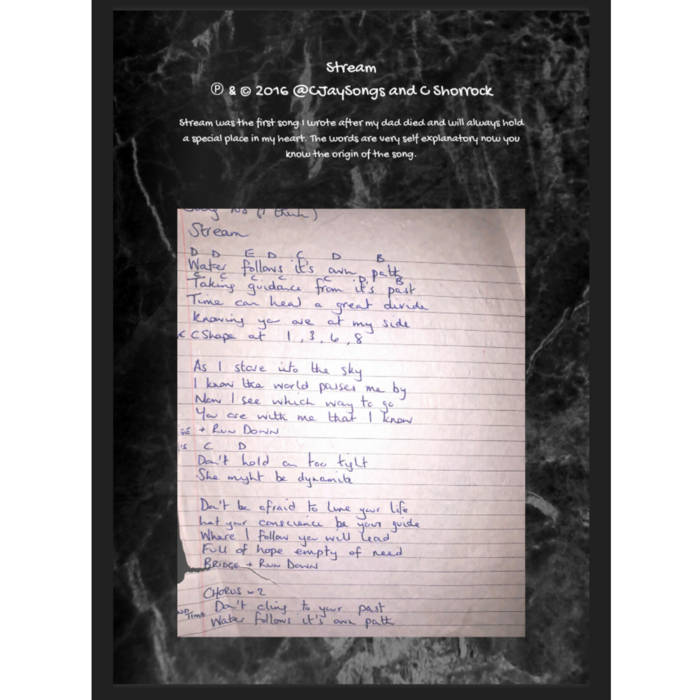 Stream
Ⓟ & © 2016 @CJaySongs and C Shorrock
Stream was the first song I wrote after my dad died and will always hold
a special place in my heart. The words are very self explanatory now you
know the origin of the song.
No (I think)
Stream
D D E D C D B
Water follows it's own path
C C C C D B
Taking guidance from it's past
Time can heal a great divide
Knowing you are at my side
C Shape at 1, 3, 6, 8
As I stare into the sky
I know the world passes me by
Now I see which way to go
You are with me that I know
+ RUN DOWN
C D
Don't hold on too tight
She might be dynamite
Don't be afraid to live your life
Let your conscience be your guide
Where I follow you will lead
Full of hope empty of need
BRIDGE + RUN DOWN
CHORUS - 2
Don't cling to your past
Time Water follows it's own path